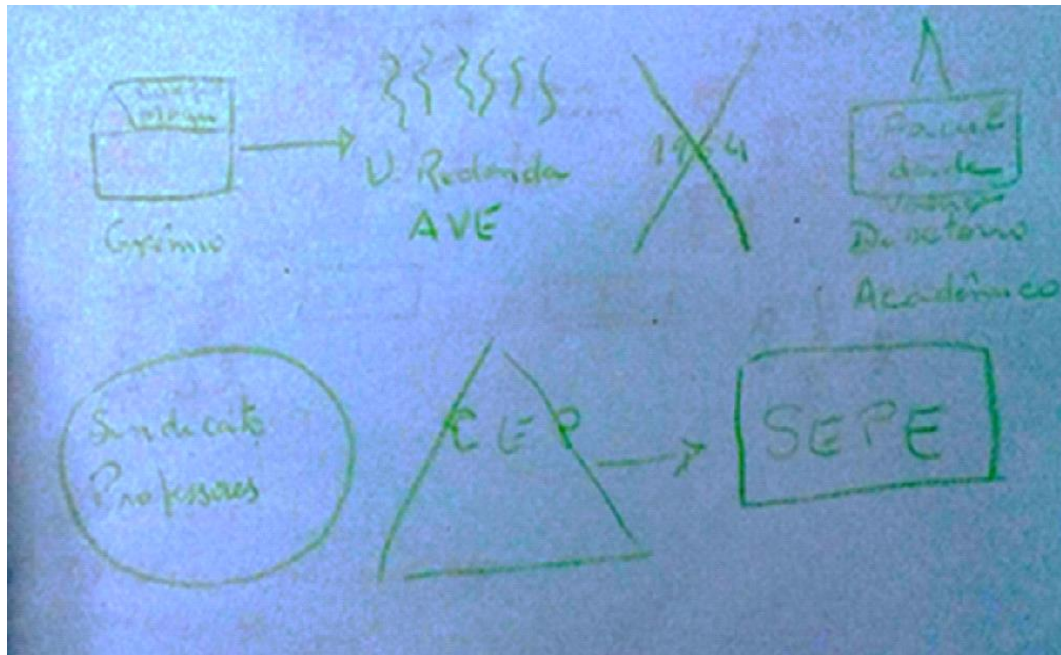 Grêmio
V. Redonda
AVE
1964
Diretório
Acadêmico
Sindicato
Professores
CEP
SEPE